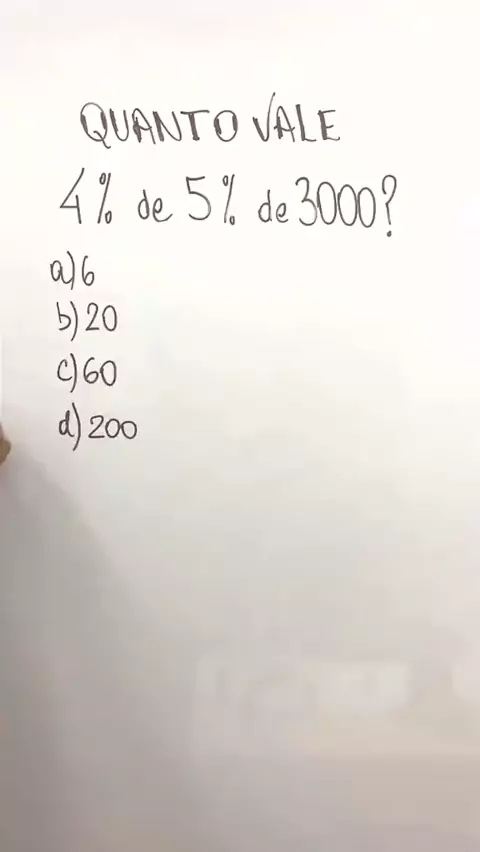 QUANTO VALE
4% de 5% de 3000?
a) 6
b) 20
c) 60
d) 200